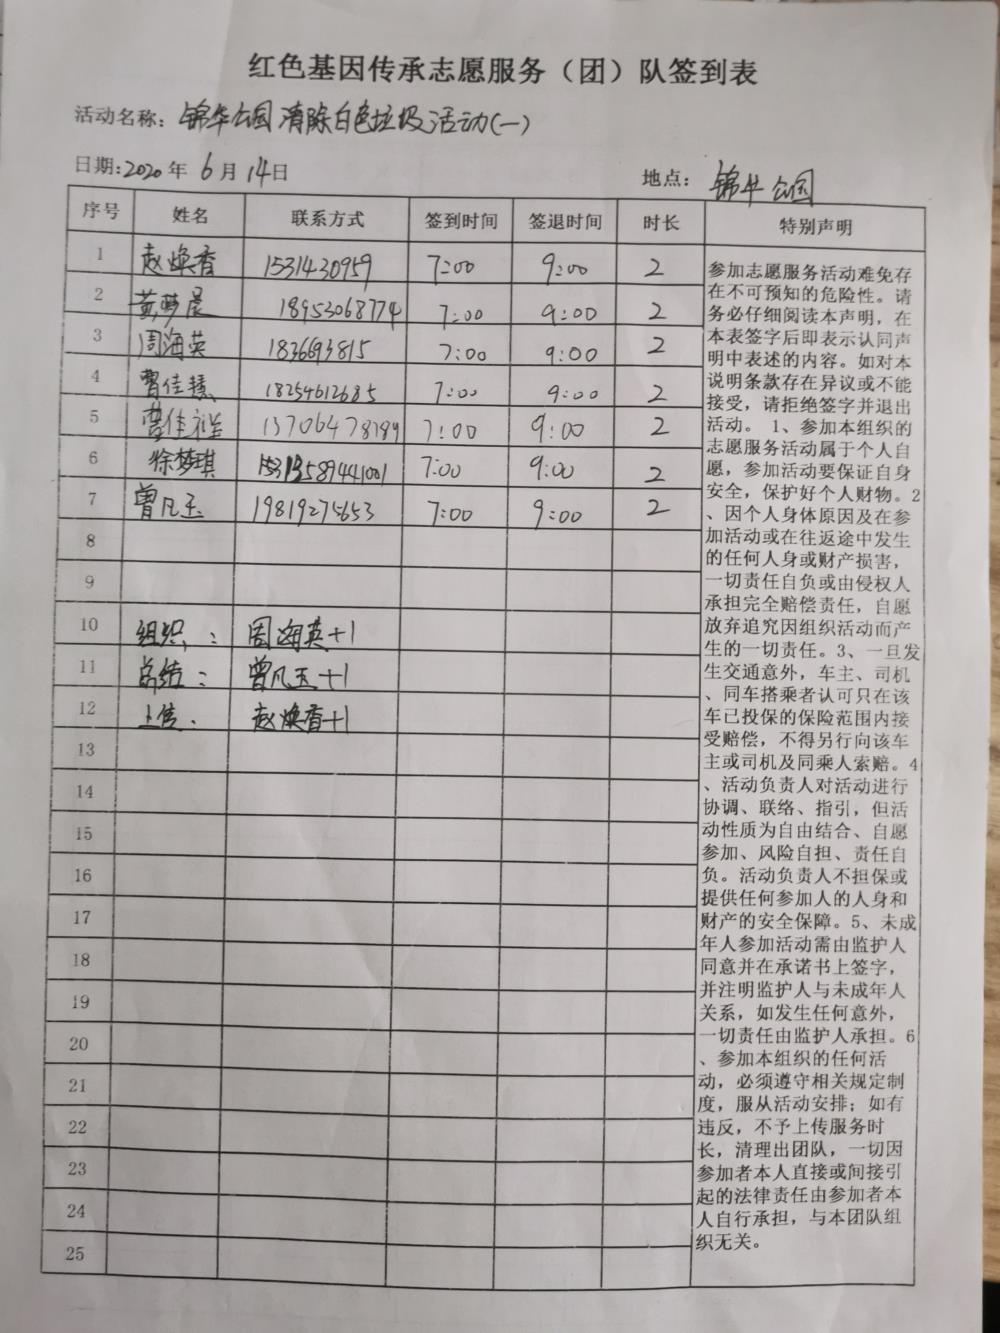 红色基因传承志愿服务（团）队签到表
活动名称：锦华公园清除白色垃圾活动(一)
日期:2020年6月14日 地点：锦华公园
序号 姓名 联系方式 签到时间 签退时间 时长 特别声明
1 赵焕香 1531430959 7:00 9:00 2
2 黄梦晨 18953068774 7:00 9:00 2
3 周海英 1836693815 7:00 9:00 2
4 曹佳慧 18254612685 7:00 9:00 2
5 曹佳祥 13706478189 7:00 9:00 2
6 徐梦琪 7:00 9:00 2
7 曾凡玉 19819275653 7:00 9:00 2
8
9
10 组织：周海英+1
11 总结：曾凡玉+1
12 上传：赵焕香+1
13
14
15
16
17
18
19
20
21
22
23
24
25
参加志愿服务活动难免存
在不可预知的危险性。请
务必仔细阅读本声明，在
本表签字后即表示认同声
明中表述的内容。如对本
说明条款存在异议或不能
接受，请拒绝签字并退出
活动。 1、参加本组织的
志愿服务活动属于个人自
愿，参加活动要保证自身
安全，保护好个人财物。2
、因个人身体原因及在参
加活动或在往返途中发生
的任何人身或财产损害，
一切责任自负或由侵权人
承担完全赔偿责任，自愿
放弃追究因组织活动而产
生的一切责任。3、一旦发
生交通意外，车主、司机
、同车搭乘者认可只在该
车已投保的保险范围内接
受赔偿，不得另行向该车
主或司机及同乘人索赔。4
、活动负责人对活动进行
协调、联络、指引，但活
动性质为自由结合、自愿
参加、风险自担、责任自
负。活动负责人不担保或
提供任何参加人的人身和
财产的安全保障。5、未成
年人参加活动需由监护人
同意并在承诺书上签字，
并注明监护人与未成年人
关系，如发生任何意外，
一切责任由监护人承担。6
、参加本组织的任何活
动，必须遵守相关规定制
度，服从活动安排；如有
违反，不予上传服务时
长，清理出团队，一切因
参加者本人直接或间接引
起的法律责任由参加者本
人自行承担，与本团队组
织无关。